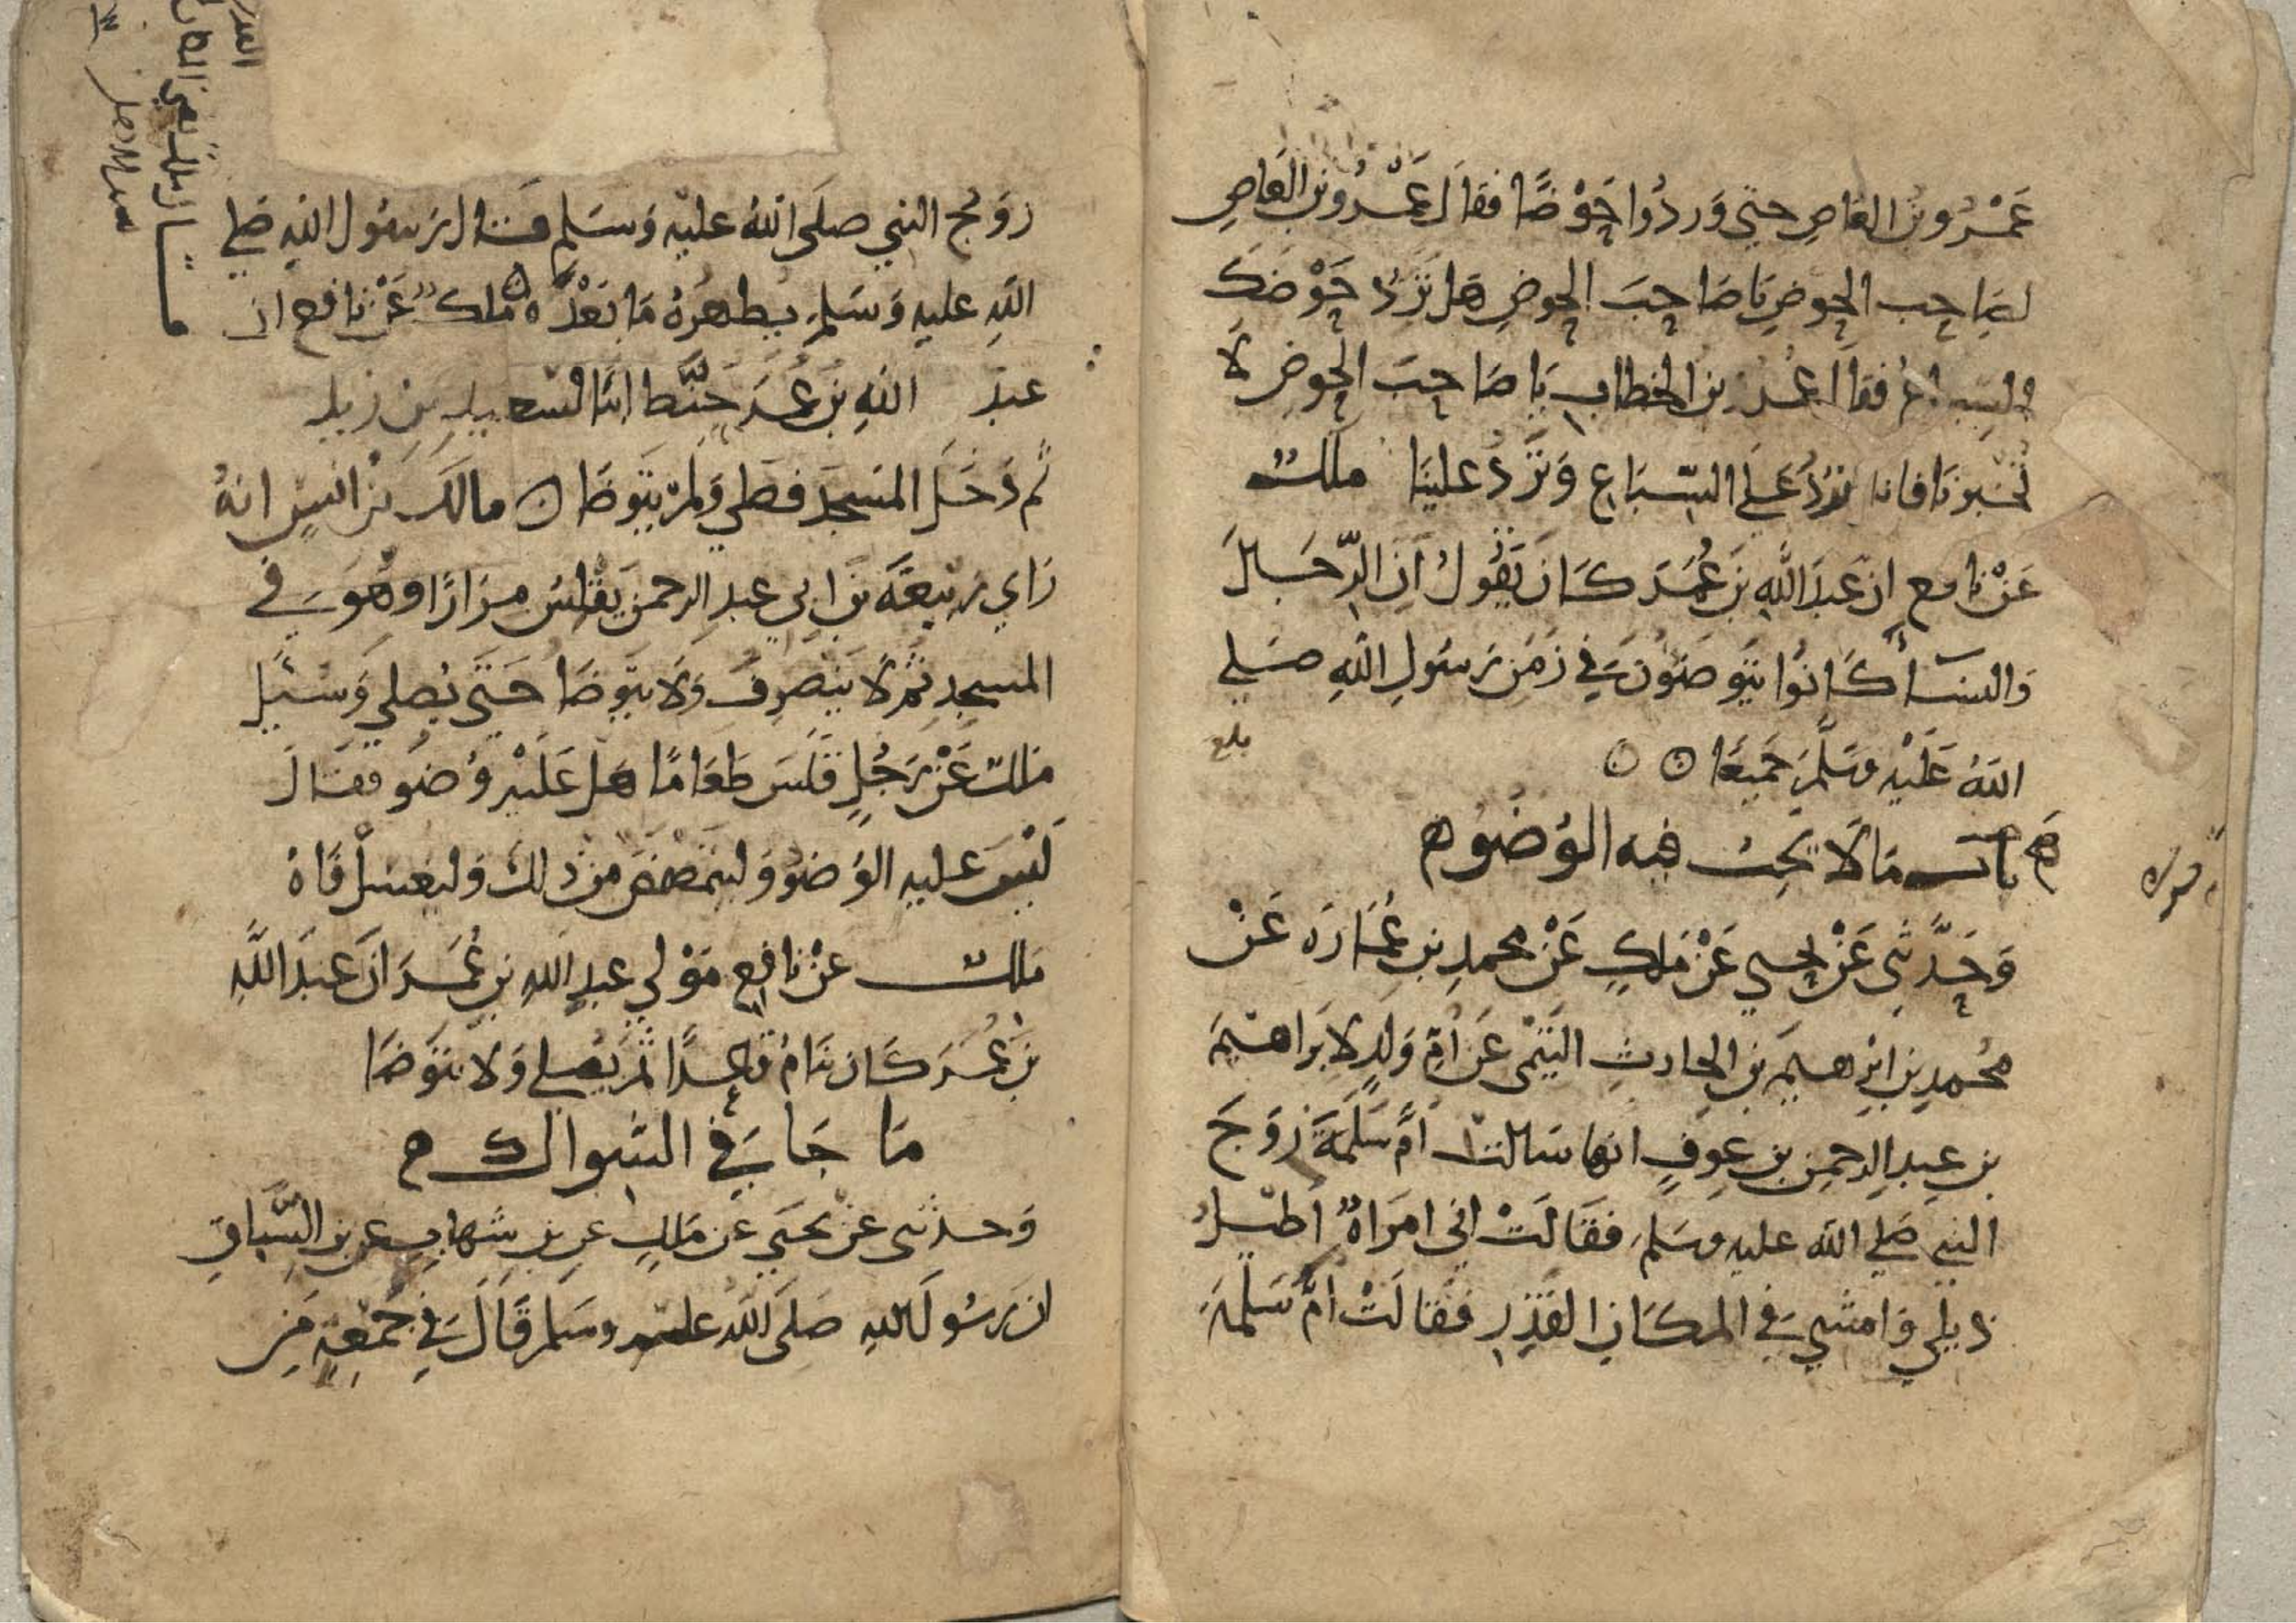 عَمْرُو بن العَاصِ حتى وَرَدُوا حَوْضًا فقالَ عَمْرُو بن العَاصِ
لصَاحِب الحوضِ يَا صَاحِبَ الحوضِ هَل تَرِدُ حَوْضَكَ
السباع فقال عُمر بن الخطاب يَا صَاحِبَ الحوضِ لَا
تخبرنَا فانا نَرِدُ عَلى السِّبَاعِ وَتَرِدُ علينَا ملك
عَنْ نافع ان عَبدَ اللهِ بن عُمَرَ كَانَ يَقُولُ ان الرّجَالَ
وَالنسَاء كَانُوا يتَوضئونَ فِي زَمَنِ رَسُولِ اللهِ صَلى
اللهُ عَلَيْهِ وسَلَّمَ جَمِيعًا
بلغ
باب مَا لَا يجب فيه الوُضُوء
وَحَدَّثنِي عَنْ يحيي عَنْ مَلكٍ عَنْ محمدِ بنِ عُمَارَه عَنْ
مُحَمدِ بنِ ابْرهيمَ بنِ الحارثِ التَيْمي عَن اُمّ وَلدٍ لابرَاهيمَ
بنِ عبدِ الرحمنِ بنِ عوفٍ انها سَالت اُمَّ سَلَمَةَ زوَجَ
النبي صَلى الله عليه وسَلم فقَالَتْ اني امرَاةٌ اطيلُ
ذيلي وَامشي فِي المكَانِ القَذِرِ فقَالَتْ امُّ سَلَمَة
زوَج النبي صلَى اللهُ عليْه وَسَلم قال رَسُول الله صَلى
اللهِ عليهِ وَسَلم يطهرُهُ مَا بَعْدَهُ ملك عَنْ نافع ان
عبدَ اللهِ بن عُمَرَ حَنَّط ابنًا لسعيدِ بنِ زَيد
ثم دَخَلَ المَسجدَ فصَلى وَلمْ يتَوضَا مالك بنْ انسٍ انهُ
رَاي رَبيعَةَ بنَ ابي عبدِ الرحمن يَقْلِسُ مرَارًا وهُوَ في
المسجدِ ثمَّ لَا يَنصَرِفُ وَلَا يتَوضَا حَتى يُصلي وَسُئِل
مَلك عَنْ رَجُلٍ قَلَسَ طَعَامًا هَل عَليْه وُضُو فقَالَ
لَيْسَ عليهِ الوُضُو وَليتَمضمَضَ مِنْ ذلكَ وَليغسِلْ فَاهُ
مَلك عَنْ نافِعٍ مَوْلي عبدِ اللهِ بنِ عُمَرَ انَ عَبدَ اللهِ
بنَ عُمَرَ كَانَ يَنَامُ قاعِدًا ثمَّ يُصلى وَلا يتَوَضَا
مَا جَا فِي السِّوَاك
وَحدثني عَنْ يحيَي عَن مَالكِ عن بنِ شهابٍ عن بنِ السَّبَاقِ
ان رَسُولَ اللهِ صَلَى اللهُ عليه وسَلم قَالَ فِي جُمُعَةٍ مِن